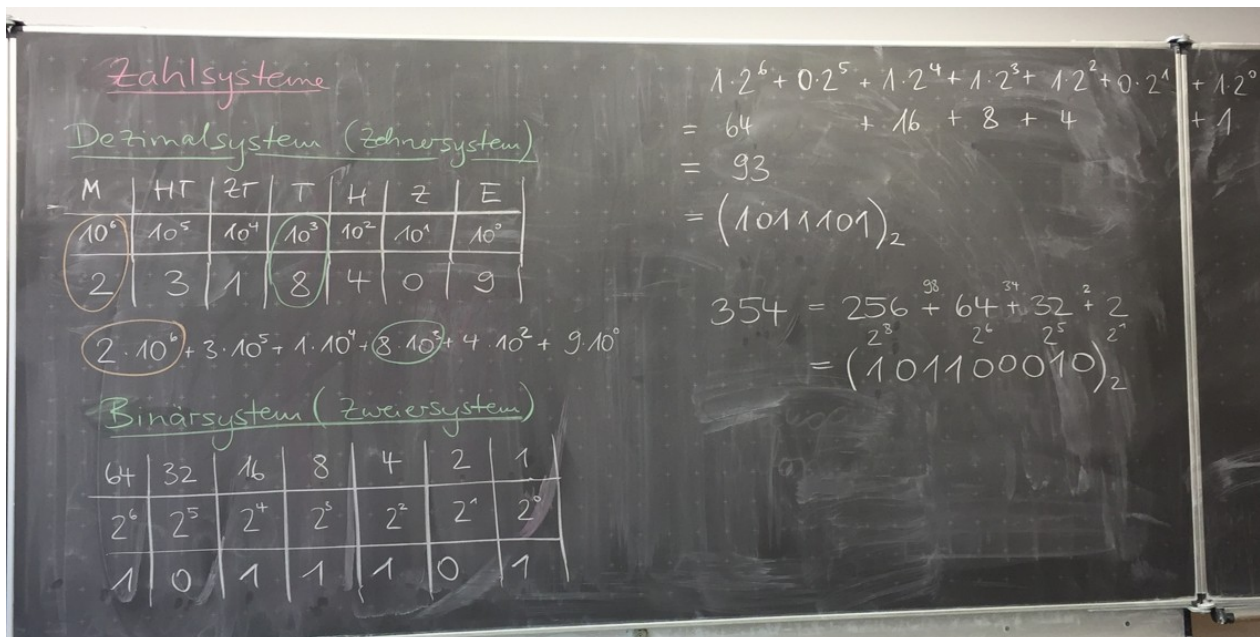 Zahlsysteme
Dezimalsystem (Zehnersystem)
M | HT | ZT | T | H | Z | E
10⁶ | 10⁵ | 10⁴ | 10³ | 10² | 10¹ | 10⁰
2 | 3 | 1 | 8 | 4 | 0 | 9
2·10⁶ + 3·10⁵ + 1·10⁴ + 8·10³ + 4·10² + 9·10⁰
Binärsystem (Zweiersystem)
64 | 32 | 16 | 8 | 4 | 2 | 1
2⁶ | 2⁵ | 2⁴ | 2³ | 2² | 2¹ | 2⁰
1 | 0 | 1 | 1 | 1 | 0 | 1
1·2⁶ + 0·2⁵ + 1·2⁴ + 1·2³ + 1·2² + 0·2¹ + 1·2⁰
= 64 + 16 + 8 + 4 + 1
= 93
= (1011101)₂
98 34 2
354 = 256 + 64 + 32 + 2
2⁸ 2⁶ 2⁵ 2¹
= (101100010)₂